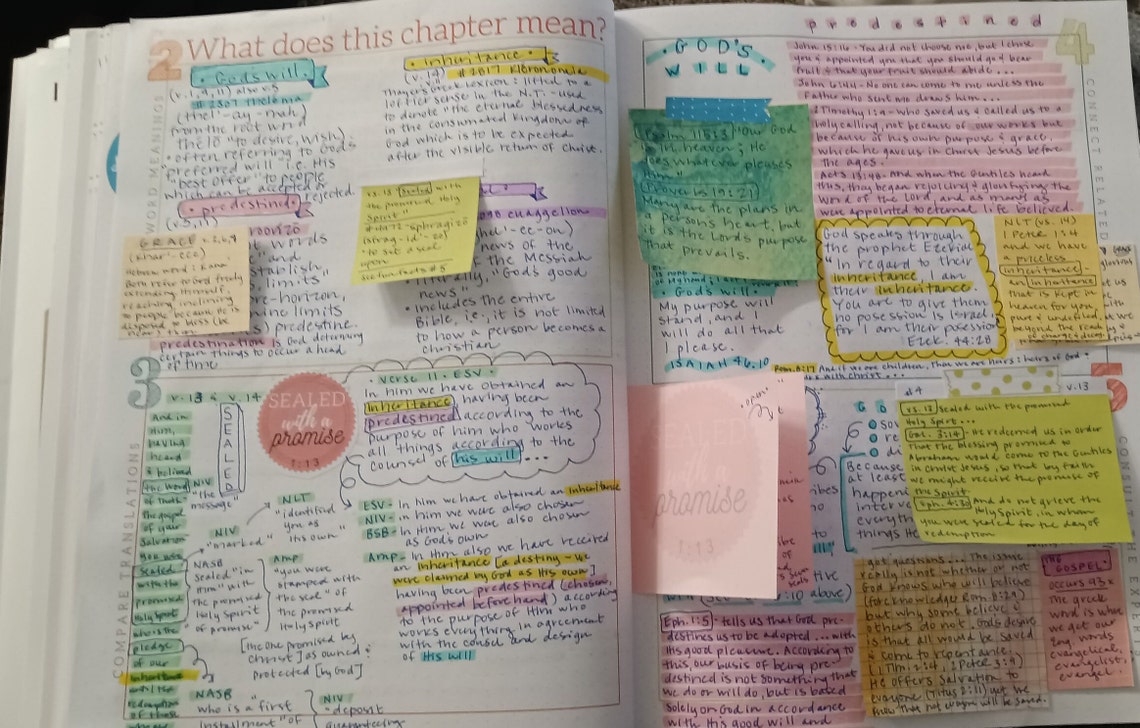 2 What does this chapter mean?
WORD MEANINGS
• God's will •
(v. 1, 9, 11) also v.5
#2307 thelēma
(thel'-ay-mah)
from the root word
"to desire, wish)
• often referring to God's
"preferred will" i.e. His
"best offer" to people
which can be accepted or rejected.
• predestined •
(v 5, 11)
words
and
establish
limits
pre-horizon,
limits
predestine.
predestination is God determining
certain things to occur ahead
of time
GRACE v. 2, 6, 7
(khar'-ece)
Both refer to God freely
extending Himself
reaching inclining
to people because He is
disposed to bless (be
• inheritance •
(v. 14) #2817 klēronomia
Thayer's Greek Lexicon: lifted to a
loftier sense in the N.T. - used
to denote "the eternal blessedness
in the consumated kingdom of
God which is to be expected
after the visible return of Christ.
vs. 13 sealed with
the promised Holy
Spirit"
#4972-sphragizō
(sfrag-id'-zo)
"to set a seal
upon
euaggelion
news of the
the Messiah
"God's good
news"
• includes the entire
Bible, i.e., it is not limited
to how a person becomes a
christian
3
COMPARE TRANSLATIONS
v. 13 & v. 14
And in
Him,
having
heard
& believed
the word
of truth-
the gospel
of your
salvation
you were
sealed
with the
promised
Holy Spirit
who is the
pledge
of our
inheritance
until the
redemption
of those
SEALED
NIV
"the
message"
NIV
"marked"
NLT
"identified
you as
His own"
NASB
sealed "in
the promised
Holy Spirit
of promise"
Amp
"you were
stamped with
the seal" of
the promised
Holy Spirit
[the one promised by
Christ] as owned &
protected [by God]
NASB
who is a first
installment "of
NIV
"deposit
guaranteeing
SEALED
with a
promise
1:13
• verse 11 - ESV •
In him we have obtained an
inheritance, having been
predestined according to the
purpose of him who works
all things according to the
counsel of his will ...
ESV - In him we have obtained an inheritance
NIV - in him we were also chosen
BSB - In Him we were also chosen
as God's own
Amp - In Him also we have received
an inheritance [a destiny - we
were claimed by God as His own]
having been predestined (chosen,
appointed beforehand) according
to the purpose of Him who
works everything in agreement
with the counsel and design
of His will
predestined
4
CONNECT RELATED
GOD'S
WILL
Psalm 115:3 "Our God
is in heaven; He
does whatever pleases
Him"
Proverbs 19:21
Many are the plans in
a person's heart, but
it is the Lord's purpose
that prevails.
• God's will •
My purpose will
stand, and I
will do all that
I please.
ISAIAH 46:10
John 15:16 - You did not choose me, but I chose
you & appointed you that you should go & bear
fruit & that your fruit should abide ...
John 6:44 - No one can come to me unless the
Father who sent me draws him...
2 Timothy 1:9 - who saved us & called us to a
holy calling, not because of our works but
because of his own purpose & grace,
which he gave us in Christ Jesus before
the ages.
Acts 13:48 - And when the Gentiles heard
this, they began rejoicing & glorifying the
word of the Lord, and as many as
were appointed to eternal life believed.
God speaks through
the prophet Ezekiel
"In regard to their
inheritance, I am
their inheritance.
You are to give them
no possession is Israel,
for I am their posession
Ezek. 44:28
NLT (vs. 14)
1 Peter 1:4
and we have
a priceless
inheritance -
an inheritance
that is kept in
heaven for you
pure & undefiled,
beyond the reach
Rom. 8:17 And if we are children, then we are heirs: heirs of God
with Christ ...
• open •
promise
1:13
#4
v. 13
vs. 13 sealed with the promised
Holy Spirit ...
Gal. 3:14 - He redeemed us in order
that the blessing promised to
Abraham would come to the Gentiles
in Christ Jesus, so that by faith
we might receive the promise of
the Spirit.
Eph. 4:30 And do not grieve the
Holy Spirit, in whom
you were sealed for the day of
redemption
Because
at least
happeni
interve
everyth
things He
Eph. 1:5 - tells us that God pre-
destines us to be adopted ... with
His good pleasure. According to
this, our basis of being pre-
destined is not something that
we do or will do, but is based
solely on God in accordance
with His good will and
got questions... The issue
really is not whether or not
God knows who will believe
(foreknowledge Rom. 8:29)
but why some believe &
others do not. God's desire
is that all would be saved
& come to repentance
(1 Tim 2:4, 2 Peter 3:9)
He offers Salvation to
everyone (Titus 2:11) yet we
know that not everyone will be saved.
THE GOSPEL
occurs 93x
The greek
word is where
we get our
Eng words
evangelical,
evangelist &
evangel.